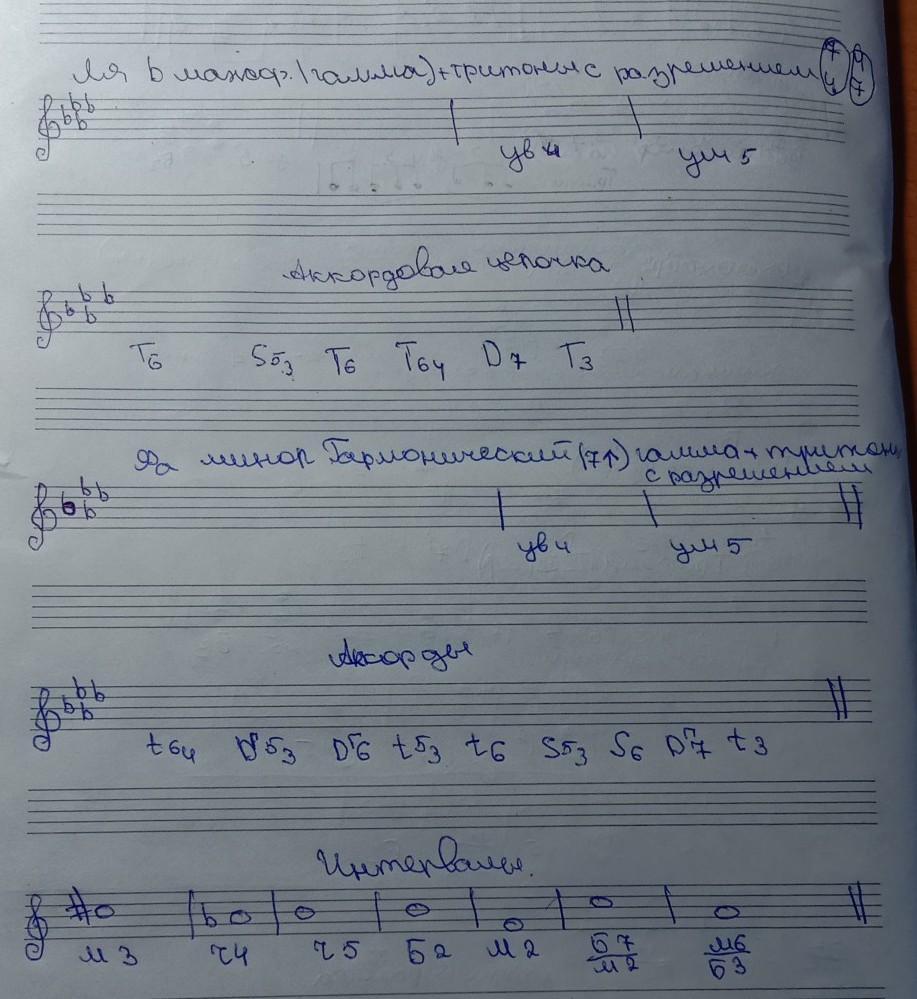 Ля b мажор. (гамма)+тритоны с разрешением 7 4 4 7
ув 4 ум 5
Аккордовая цепочка
T6 S53 T6 T64 D7 T3
Фа минор Гармонический (7↑) гамма + тритоны
с разрешением
ув 4 ум 5
Аккорды
t64 Dг53 Dг6 t53 t6 S53 S6 Dг7 t3
Интервалы.
м 3 ч4 ч5 Б2 м2 Б7 м2 м6 Б3